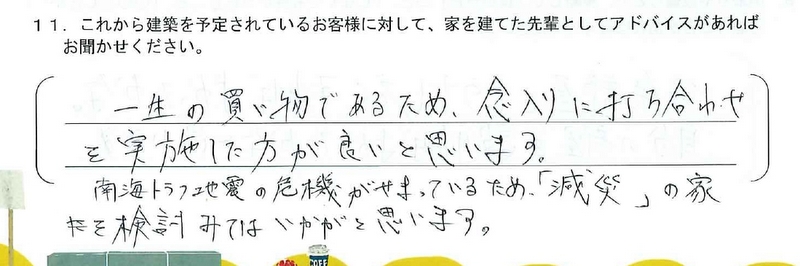 11．これから建築を予定されているお客様に対して、家を建てた先輩としてアドバイスがあれば
お聞かせください。
一生の買い物であるため、念入りに打ち合わせ
を実施した方が良いと思います。
南海トラフ地震の危機がせまっているため、「減災」の家
を検討みてはいかがと思います。
COFF